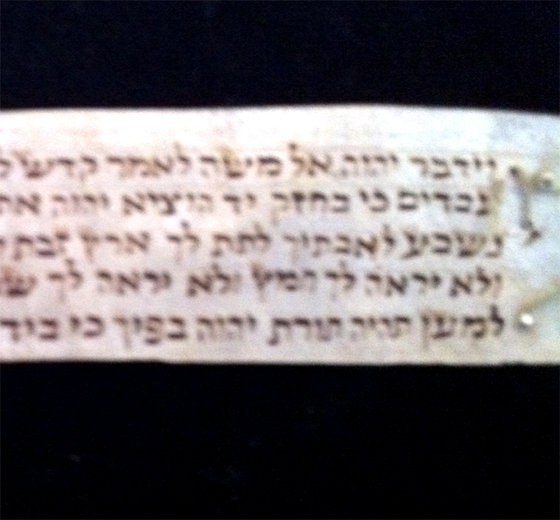 וידבר יהוה אל משה לאמר קדש ל
עבדים כי בחזק יד הוציא יהוה את
נשבע לאבתיך לתת לך ארץ זבת
ולא יראה לך חמץ ולא יראה לך ש
למען תהיה תורת יהוה בפיך כי ביד